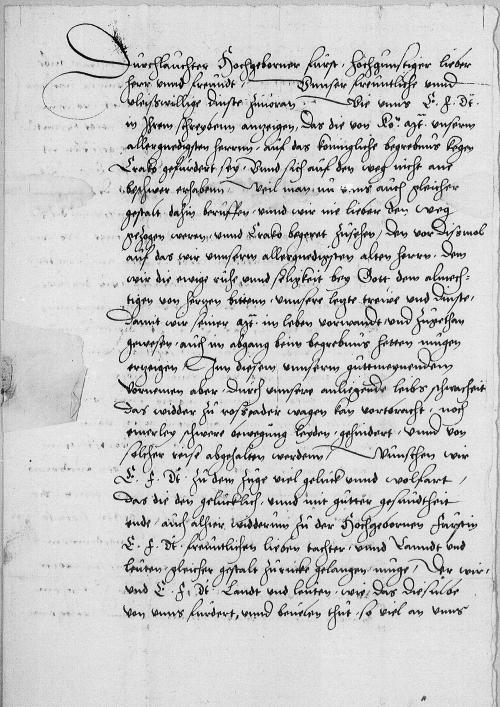 Durchlauchter Hochgeborner furst, hochgunstiger lieber
herr unnd freundt, Unnser freuntliche unnd
vleißwillige dinste zuuoran. Wie unns E. f. Dt.
in Ihrem schreybenn anzeigen, das die von Ko. Mt. unserm
allergnedigsten herrnn, auf das konigliche begrebnus kegen
Crako gefordert sey, Unnd sich auf den weg nicht ane
beschwer erhabenn, Weil man nu unns auch gleicher
gestalt dahin beruffen, unnd wir nie lieber den weg
gezogen weren, unnd Crako begeret zusehen, den vor dißmol
auf das wir unnserm allergnedigsten alten herrn, dem
wir die ewige ruhe unnd seligkeit bey Gott dem almech-
tigen von hertzen bittenn, unnsere letzte trewe und dinste,
Damit wir seiner Mt. im leben vorwandt und zugethan
gewesen, auch im abgang beim begrebnus hetten mugen
erzeigen Inn diesem unnserm guttmeynendem
vornemen aber, durch unnsere anligende leibs schwacheit
das widder zu roß ader wagen kan vortbracht, noch
einerley schwere bewegung leyden, gehindert, unnd von
solcher reise abgehalten werdenn, Wunschen wir
E. f. Dt. zu dem zuge viel gelück unnd wolfart,
das die den gelucklich, unnd mit gutter gesundtheit
ende, auch alhier widderum zu der Hochgebornen Furstin
E. f. Dt. freuntlichen lieben tachter, unnd Lanndt und
leuten, gleicher gestalt zuruck gelangen muge, Der wir,
und E. f. Dt. Landt und leuten, wie das dieselbe
von unns fordert, unnd beuelen thut, so viel an unns